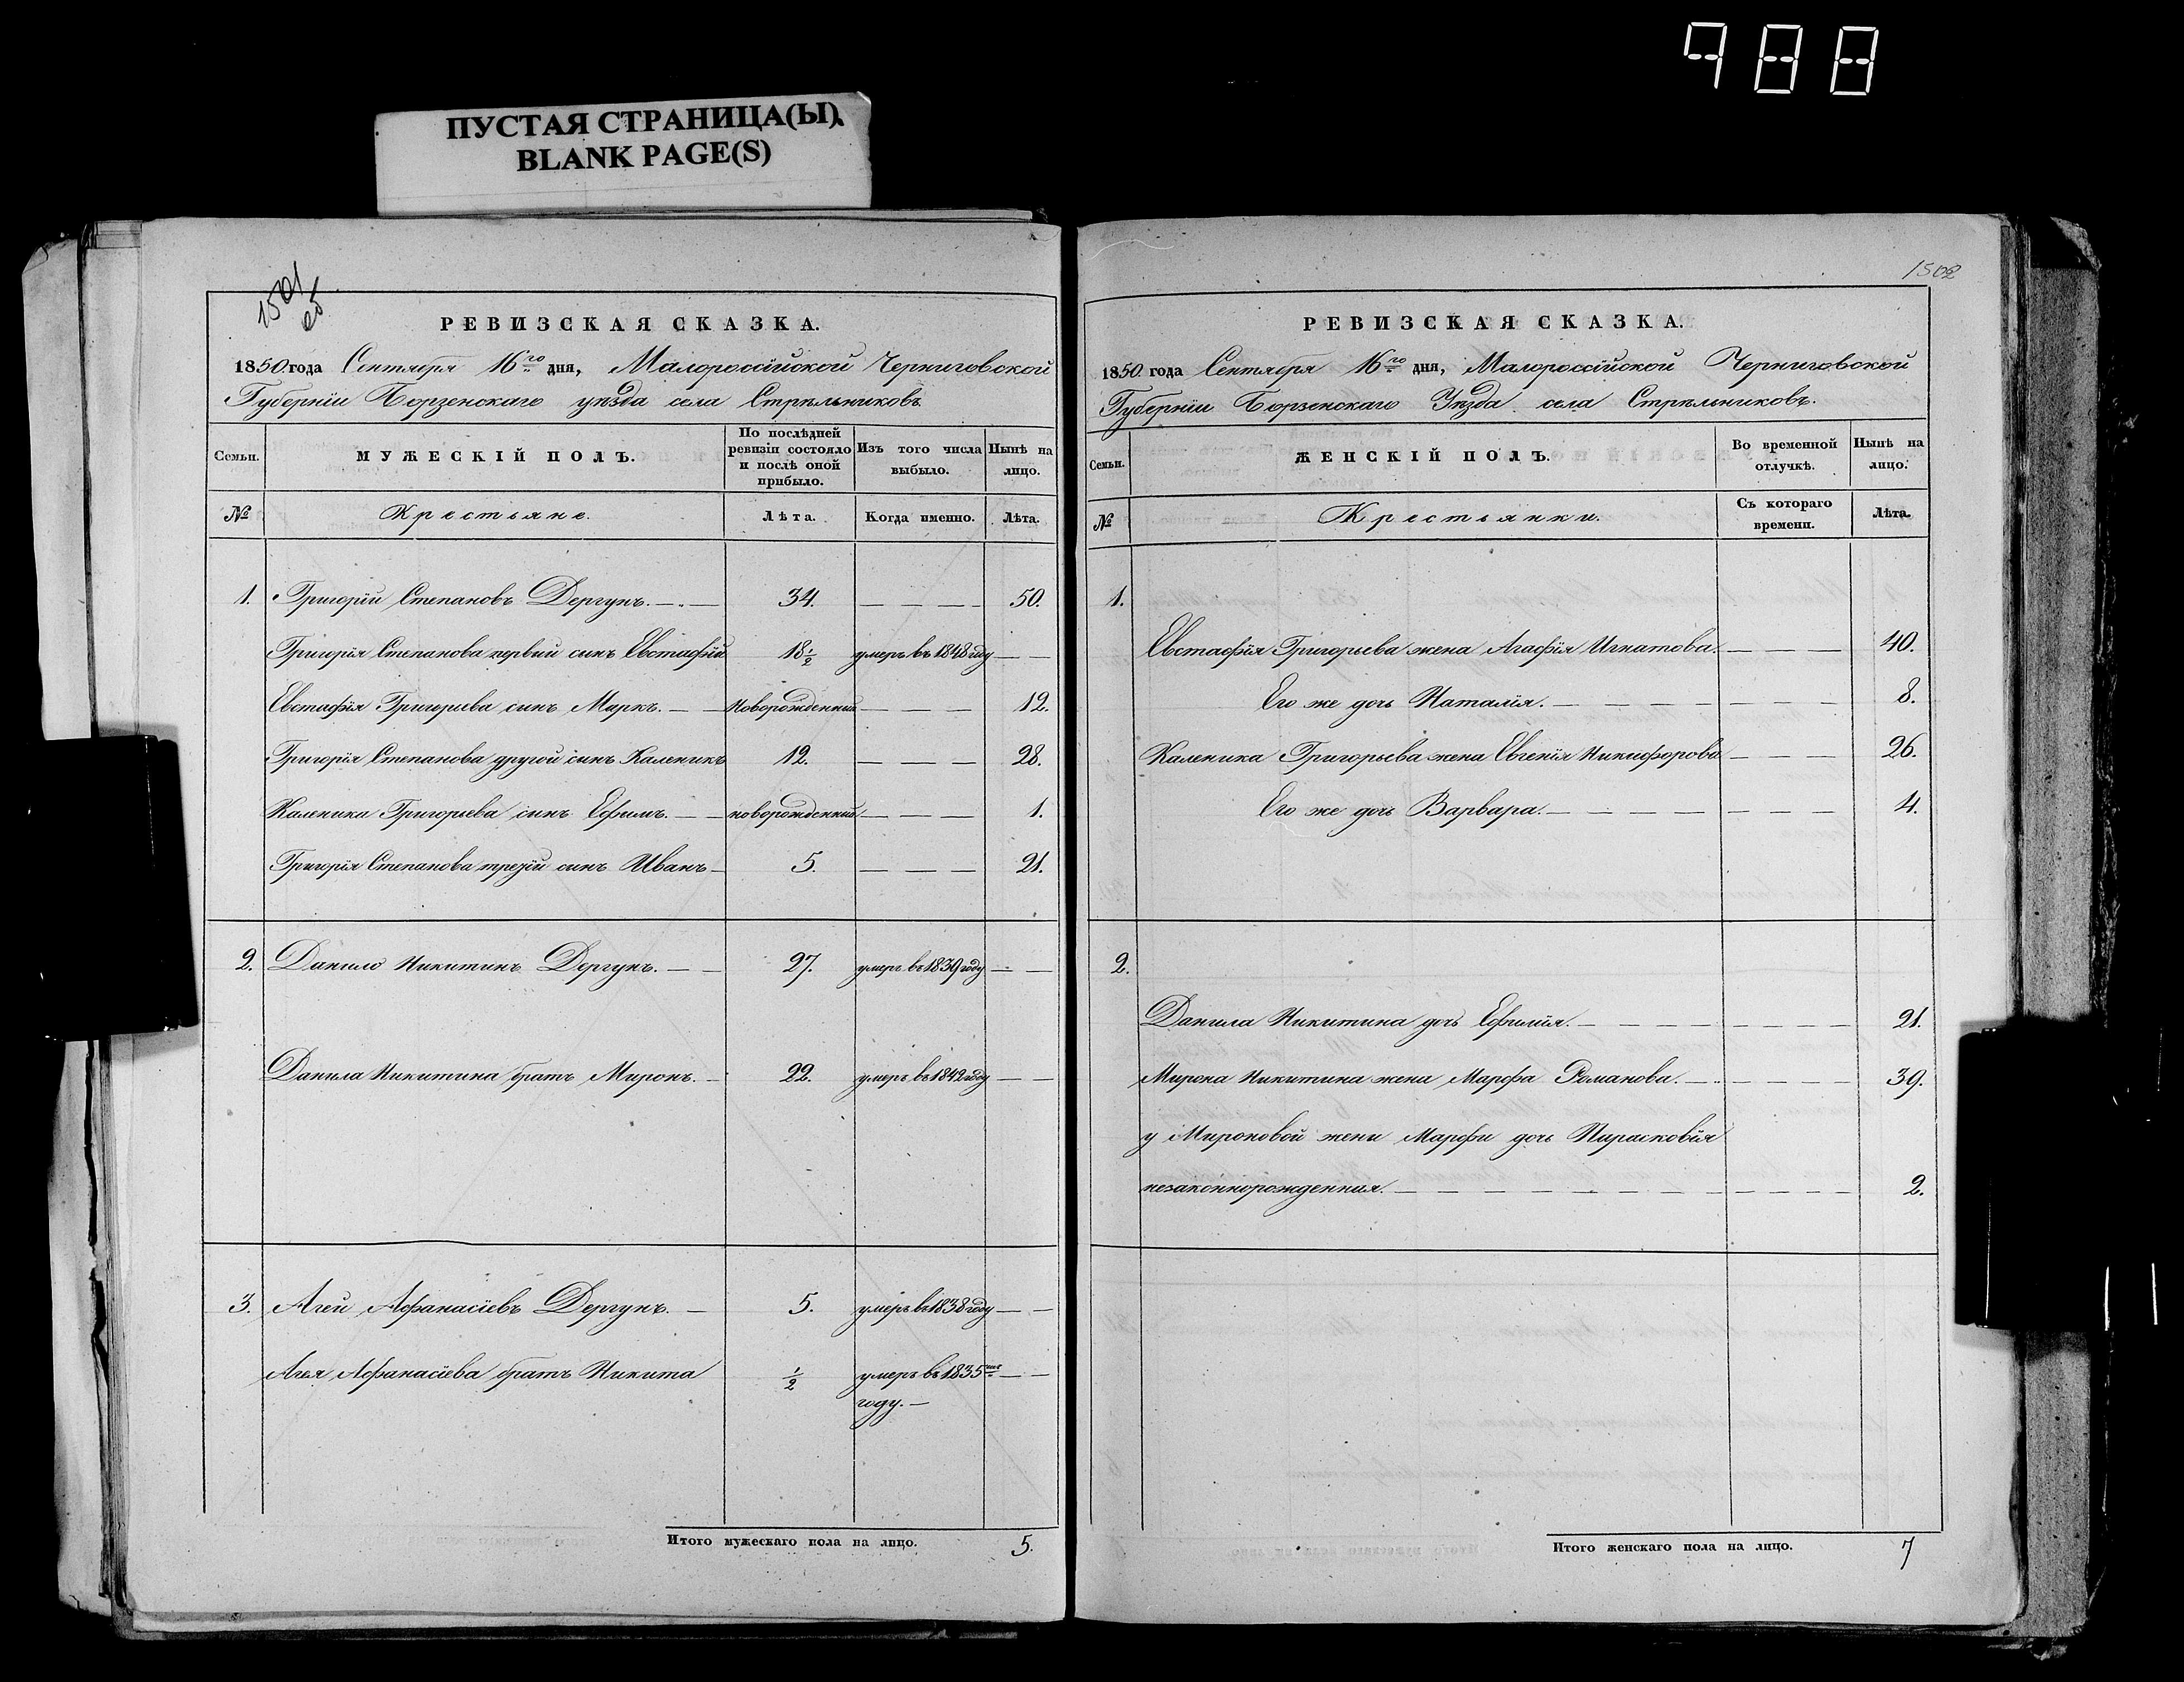 488
ПУСТАЯ СТРАНИЦА(Ы)
BLANK PAGE(S)
1501
об
РЕВИЗСКАЯ СКАЗКА.
1850 года Сентября 16го дня, Малороссійской Черниговской
Губерніи Борзенскаго уѣзда села Стрѣльниковъ
Семьи. МУЖЕСКІЙ ПОЛЪ. По послѣдней ревизіи состояло и послѣ оной прибыло. Изъ того числа выбыло. Нынѣ на лицо.
№ Крестьяне. Лѣта. Когда именно. Лѣта.
1. Григорій Степановъ Дергунъ. 34. — — — 50.
Григорія Степанова первый сынъ Евстафій 18 1/2 умеръ въ 1848 году — —
Евстафія Григорьева сынъ Маркъ. — — новорожденный — — — 12.
Григорія Степанова другой сынъ Каленикъ 12. — — — 28.
Каленика Григорьева сынъ Ефимъ. — — новорожденный — — — 1.
Григорія Степанова третій сынъ Иванъ — 5. — — — 21.
2. Данило Никитинъ Дергунъ. — — 27. умеръ въ 1839 году — —
Данила Никитина братъ Миронъ. — 22. умеръ въ 1842 году — —
3. Агей Афанасіевъ Дергунъ. — 5. умеръ въ 1838 году — —
Агея Афанасіева братъ Никита 1/2 умеръ въ 1835мъ — —
году. —
Итого мужескаго пола на лицо. 5.
1502
РЕВИЗСКАЯ СКАЗКА.
1850 года Сентября 16го дня, Малороссійской Черниговской
Губерніи Борзенскаго Уѣзда села Стрѣльниковъ.
Семьи. ЖЕНСКІЙ ПОЛЪ. Во временной отлучкѣ. Нынѣ на лицо.
№ Крестьянки. Съ котораго времени. Лѣта.
1.
Евстафія Григорьева жена Агафія Игнатова. — — — 40.
Его же дочь Наталія. — — — — — — — 8.
Каленика Григорьева жена Евгенія Никифорова — — — 26.
Его же дочь Варвара. — — — — — — — 4.
2.
Данила Никитина дочь Ефимія. — — — — — — — — 21.
Мирона Никитина жена Марфа Романова. — — — — — 39.
у Мироновой жени Марфи дочь Парасковія
незаконнорожденная. — — — — — — — — — — — 2.
Итого женскаго пола на лицо. 7